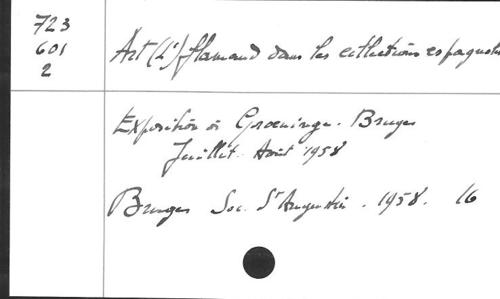 723
601
2
Art (L') flamand dans les collections espagnoles
Exposition à Groeninge. Bruges
Juillet-Août 1958
Bruges Soc. St Augustin. 1958. 16